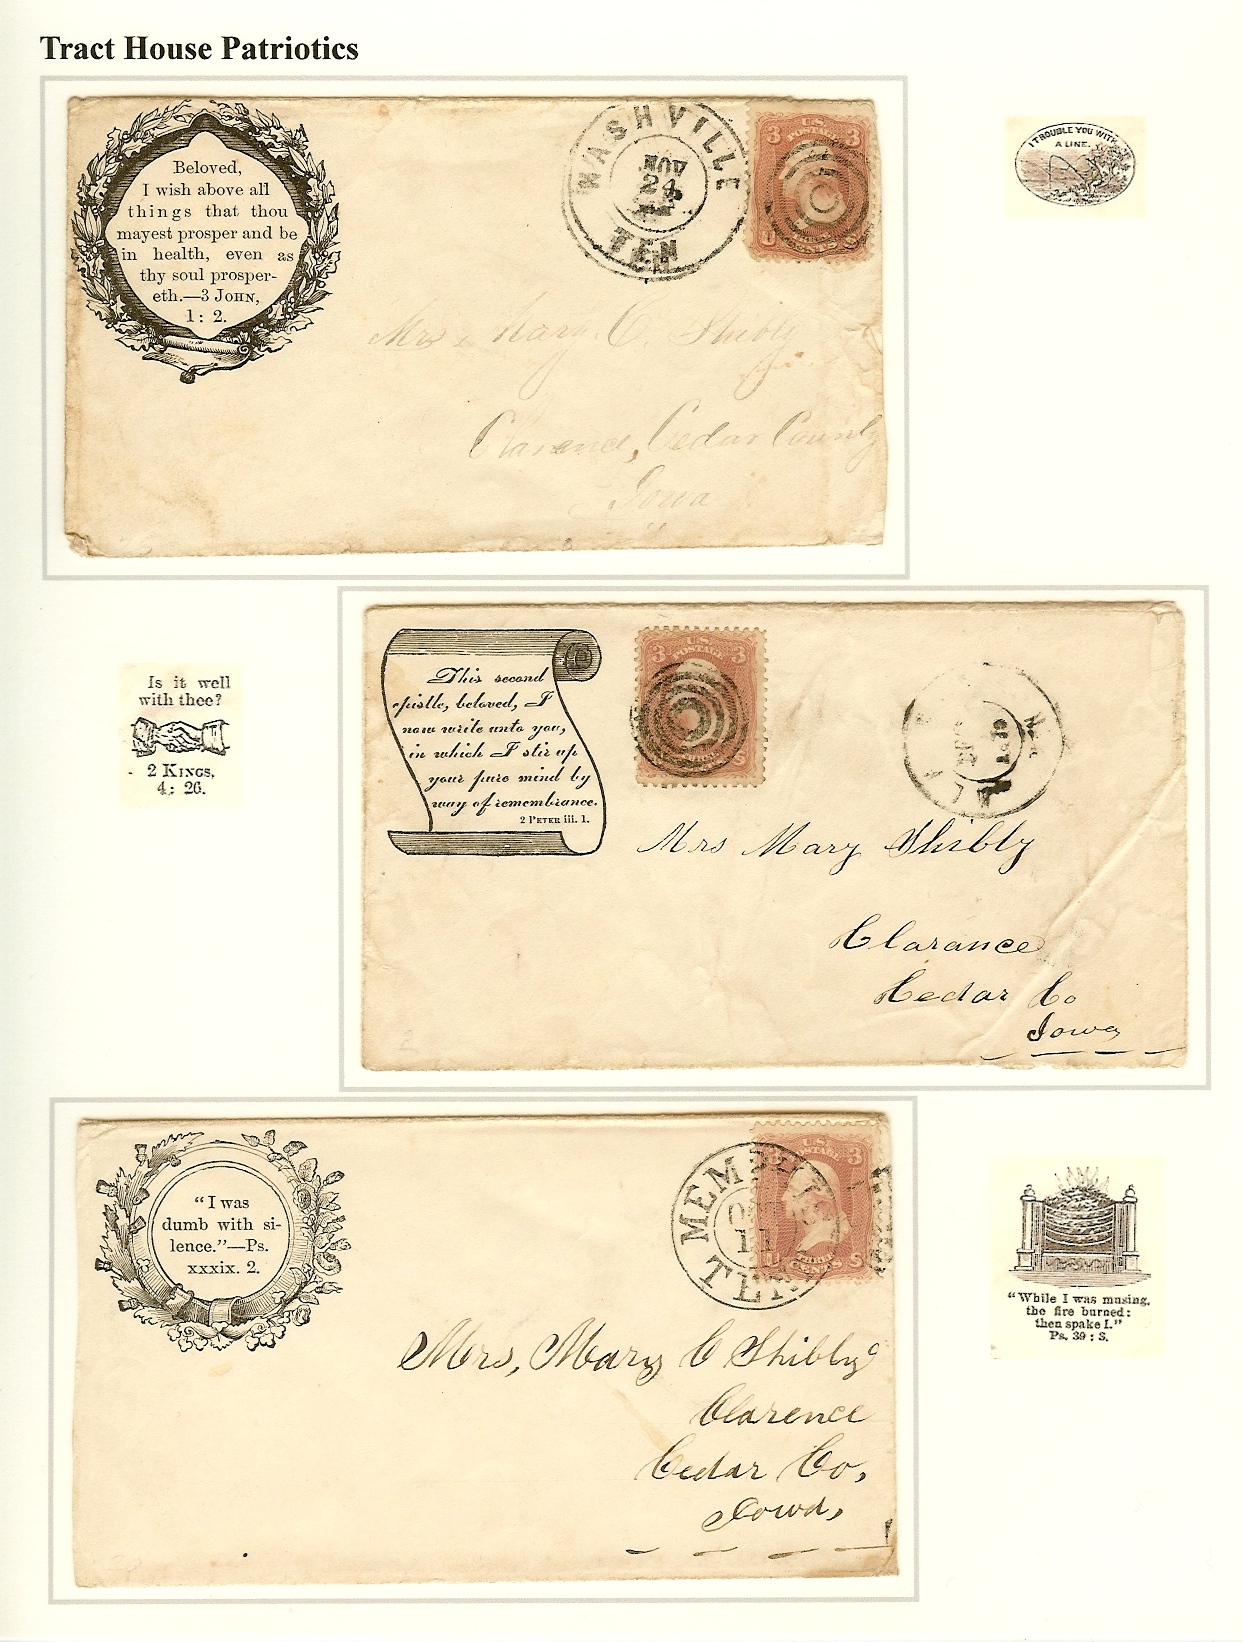 Tract House Patriotics
Beloved,
I wish above all
things that thou
mayest prosper and be
in health, even as
thy soul prosper-
eth.—3 JOHN,
1: 2.
NASHVILLE
24
TEN
3 U.S. POSTAGE 3
Mrs. Mary C. Shibly
Clarence, Cedar County
Iowa
I TROUBLE YOU WITH
A LINE.
Is it well
with thee?
2 KINGS,
4: 26.
This second
epistle, beloved, I
now write unto you,
in which I stir up
your pure mind by
way of remembrance.
2 PETER iii. 1.
3 U.S. POSTAGE 3
Mrs Mary Shibly
Clarance
Cedar Co
Iowa
"I was
dumb with si-
lence."—Ps.
xxxix. 2.
MEMPHIS
11
TEN.
U.S. POSTAGE 3
THREE CENTS
Mrs, Mary C Shibly
Clarence
Cedar Co,
Iowa,
"While I was musing,
the fire burned:
then spake I."
Ps. 39: S.